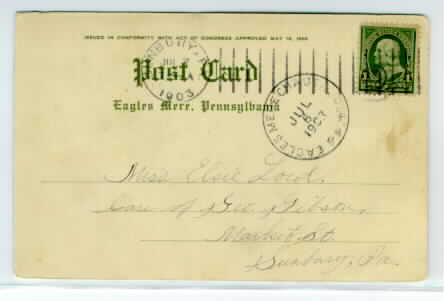 ISSUED IN CONFORMITY WITH ACT OF CONGRESS APPROVED MAY 19, 1898
Post Card
Eagles Mere, Pennsylvania
1903
EAGLES MERE & CHAU
JUL
1903
Miss Elsie Lord,
Care of Geo. Gibson,
Market St.
Sunbury, Pa.